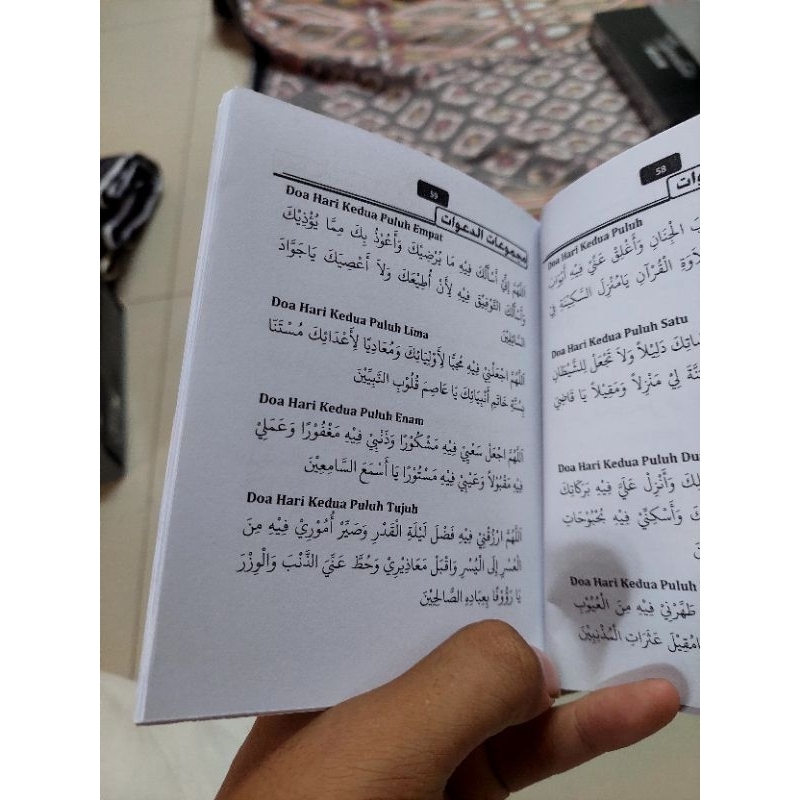 58
Doa Hari Kedua Puluh
الْجِنَانِ وَأَغْلِقْ عَنِّيْ فِيْهِ أَبْوَابَ
الْقُرْآنِ يَامُنْزِلَ السَّكِيْنَةِ فِيْ
Doa Hari Kedua Puluh Satu
دَلِيْلاً وَلاَ تَجْعَلْ لِلشَّيْطَانِ
لِيْ مَنْزِلاً وَمَقِيْلاً يَا قَاضِيَ
Doa Hari Kedua Puluh
وَأَنْزِلْ عَلَيَّ فِيْهِ بَرَكَاتِكَ
وَأَسْكِنِّيْ فِيْهِ بُحْبُوْحَاتِ
Doa Hari Kedua Puluh
طَهِّرْنِيْ فِيْهِ مِنَ الْعُيُوْبِ
عَثَرَاتِ الْمُذْنِبِيْنَ
59
مجموعات الدعوات
Doa Hari Kedua Puluh Empat
اَللّٰهُمَّ إِنِّيْ أَسْأَلُكَ فِيْهِ مَا يُرْضِيْكَ وَأَعُوْذُ بِكَ مِمَّا يُؤْذِيْكَ
وَأَسْأَلُكَ التَّوْفِيْقَ فِيْهِ لِأَنْ أُطِيْعَكَ وَلاَ أَعْصِيَكَ يَاجَوَّادَ
السَّائِلِيْنَ
Doa Hari Kedua Puluh Lima
اَللّٰهُمَّ اجْعَلْنِيْ فِيْهِ مُحِبًّا لِأَوْلِيَائِكَ وَمُعَادِيًا لِأَعْدَائِكَ مُسْتَنًّا
بِسُنَّةِ خَاتَمِ أَنْبِيَائِكَ يَا عَاصِمَ قُلُوْبِ النَّبِيِّيْنَ
Doa Hari Kedua Puluh Enam
اَللّٰهُمَّ اجْعَلْ سَعْيِيْ فِيْهِ مَشْكُوْرًا وَذَنْبِيْ فِيْهِ مَغْفُوْرًا وَعَمَلِيْ
فِيْهِ مَقْبُوْلاً وَعَيْبِيْ فِيْهِ مَسْتُوْرًا يَا أَسْمَعَ السَّامِعِيْنَ
Doa Hari Kedua Puluh Tujuh
اَللّٰهُمَّ ارْزُقْنِيْ فِيْهِ فَضْلَ لَيْلَةِ الْقَدْرِ وَصَيِّرْ أُمُوْرِيْ فِيْهِ مِنَ
الْعُسْرِ إِلَى الْيُسْرِ وَاقْبَلْ مَعَاذِيْرِيْ وَحُطَّ عَنِّيَ الذَّنْبَ وَالْوِزْرَ
يَا رَؤُوْفًا بِعِبَادِهِ الصَّالِحِيْنَ